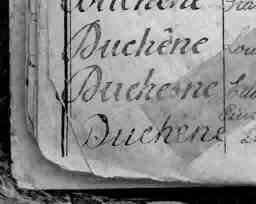 Duchêne
Duchêne Lou
Duchesne
Duchêne